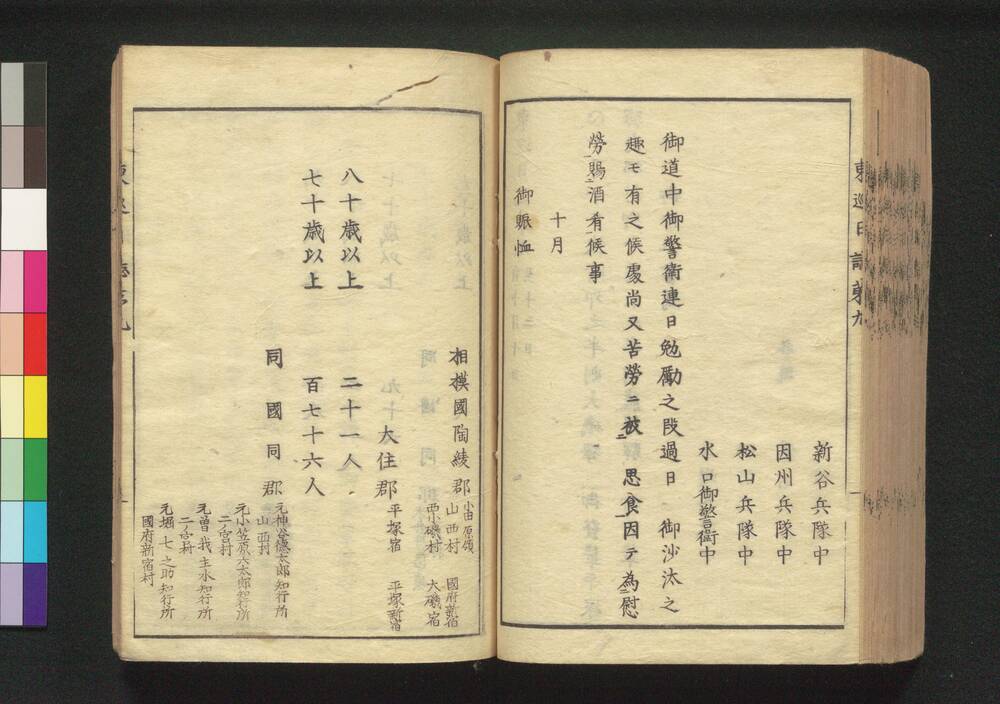 東巡日誌第九
新谷兵隊中
因州兵隊中
松山兵隊中
水口御警衛中
御道中御警衛連日勉勵之段過日 御沙汰之
趣モ有之候處尚又苦勞ニ被 思食因テ為慰
勞賜酒肴候事
十月
御賑恤
相摸國陶綾郡
小田原領
山西村 國府新宿
西小磯村 大磯宿
大住郡
平塚宿 平塚新宿
八十歳以上 二十一人
七十歳以上 百七十六人
同國同郡
元神谷德太郎知行所
山西村
元小笠原六太郎知行所
二宮村
元曽我主水知行所
二宮村
元堀七之助知行所
國府新宿村